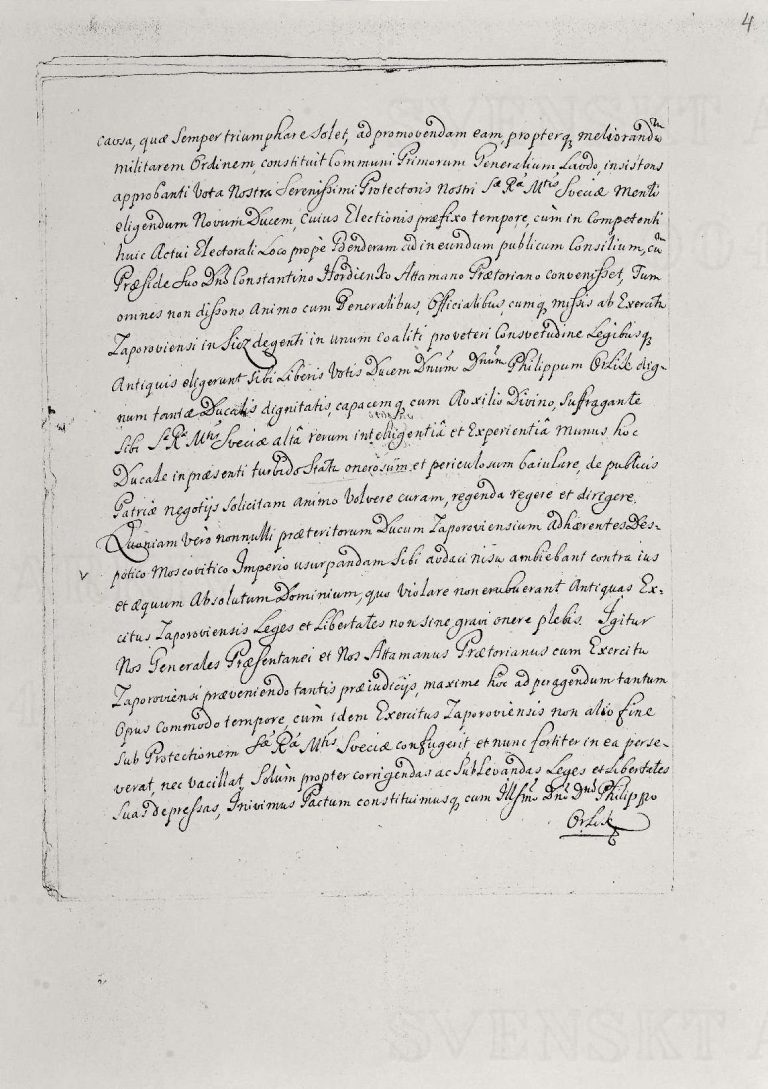 4
causa, quæ semper triumphare solet, ad promovendam eam, propterq, meliorandũ
militarem Ordinem, constituit Communi Primorum Generalium Laudo, insistens
approbanti Vota Nostra Serenissimi Protectoris Nostri Sæ Ræ Mtis Sveciæ Menti
eligendum Novum Ducem, cuius Electionis præfixo tempore, cùm in Competenti
huic Actui Electorali Loco propè Benderam ad in eundum publicum Consilium, cũ
Præside suo Dnô Constantino Hordienko Attamano Prætoriano convenisset, Tum
omnes non dissono Animo cum Generalibus, Officialibus, cumq, missis ab Exercitu
Zaporoviensi in Siez degenti in unum coaliti pro veteri Consvetudine Legibusq,
Antiquis eligerunt sibi Liberis Votis Ducem Dnũm Dnũm Philippum Orlik dig-
num tantæ Ducalis dignitatis, capacemq, cum Auxilio Divino, suffragante
sibi Sâ Râ Mtis Sveciæ altâ rerum intelligentiâ et Experientiâ munus hoc
Ducale in præsenti turbido statu onerosum et periculosum baiulare, de publicis
Patriæ negotijs solicitam animo volvere curam, regenda regere et dirigere.
Quoniam verò nonnulli præteritorum Ducum Zaporoviensium adhærentes Des-
potico Moscovitico Imperio usurpandam sibi audaci nisu ambiebant contra ius
v
et æquum Absolutum Dominium, quo violare non erubuerant Antiquas Ex-
citus Zaporoviensis Leges et Libertates non sine gravi onere plebis. Igitur
Nos Generales Præsentanei et Nos Attamanus Prætorianus cum Exercitu
Zaporoviensi præveniendo tantis præiudicijs, maxime hoc ad peragendum tantum
Opus commodo tempore, cùm idem Exercitus Zaporoviensis non alio fine
sub Protectionem Sæ Ræ Mtis Sveciæ confugerit et nunc fortiter in ea perse-
verat, nec vacillat, solùm propter corrigendas ac sublevandas Leges et Libertates
suas depressas, Inivimus Pactum constituimusq, cum Illsmô Dnô Dnô Philippo
Orlik
SVENSKT A